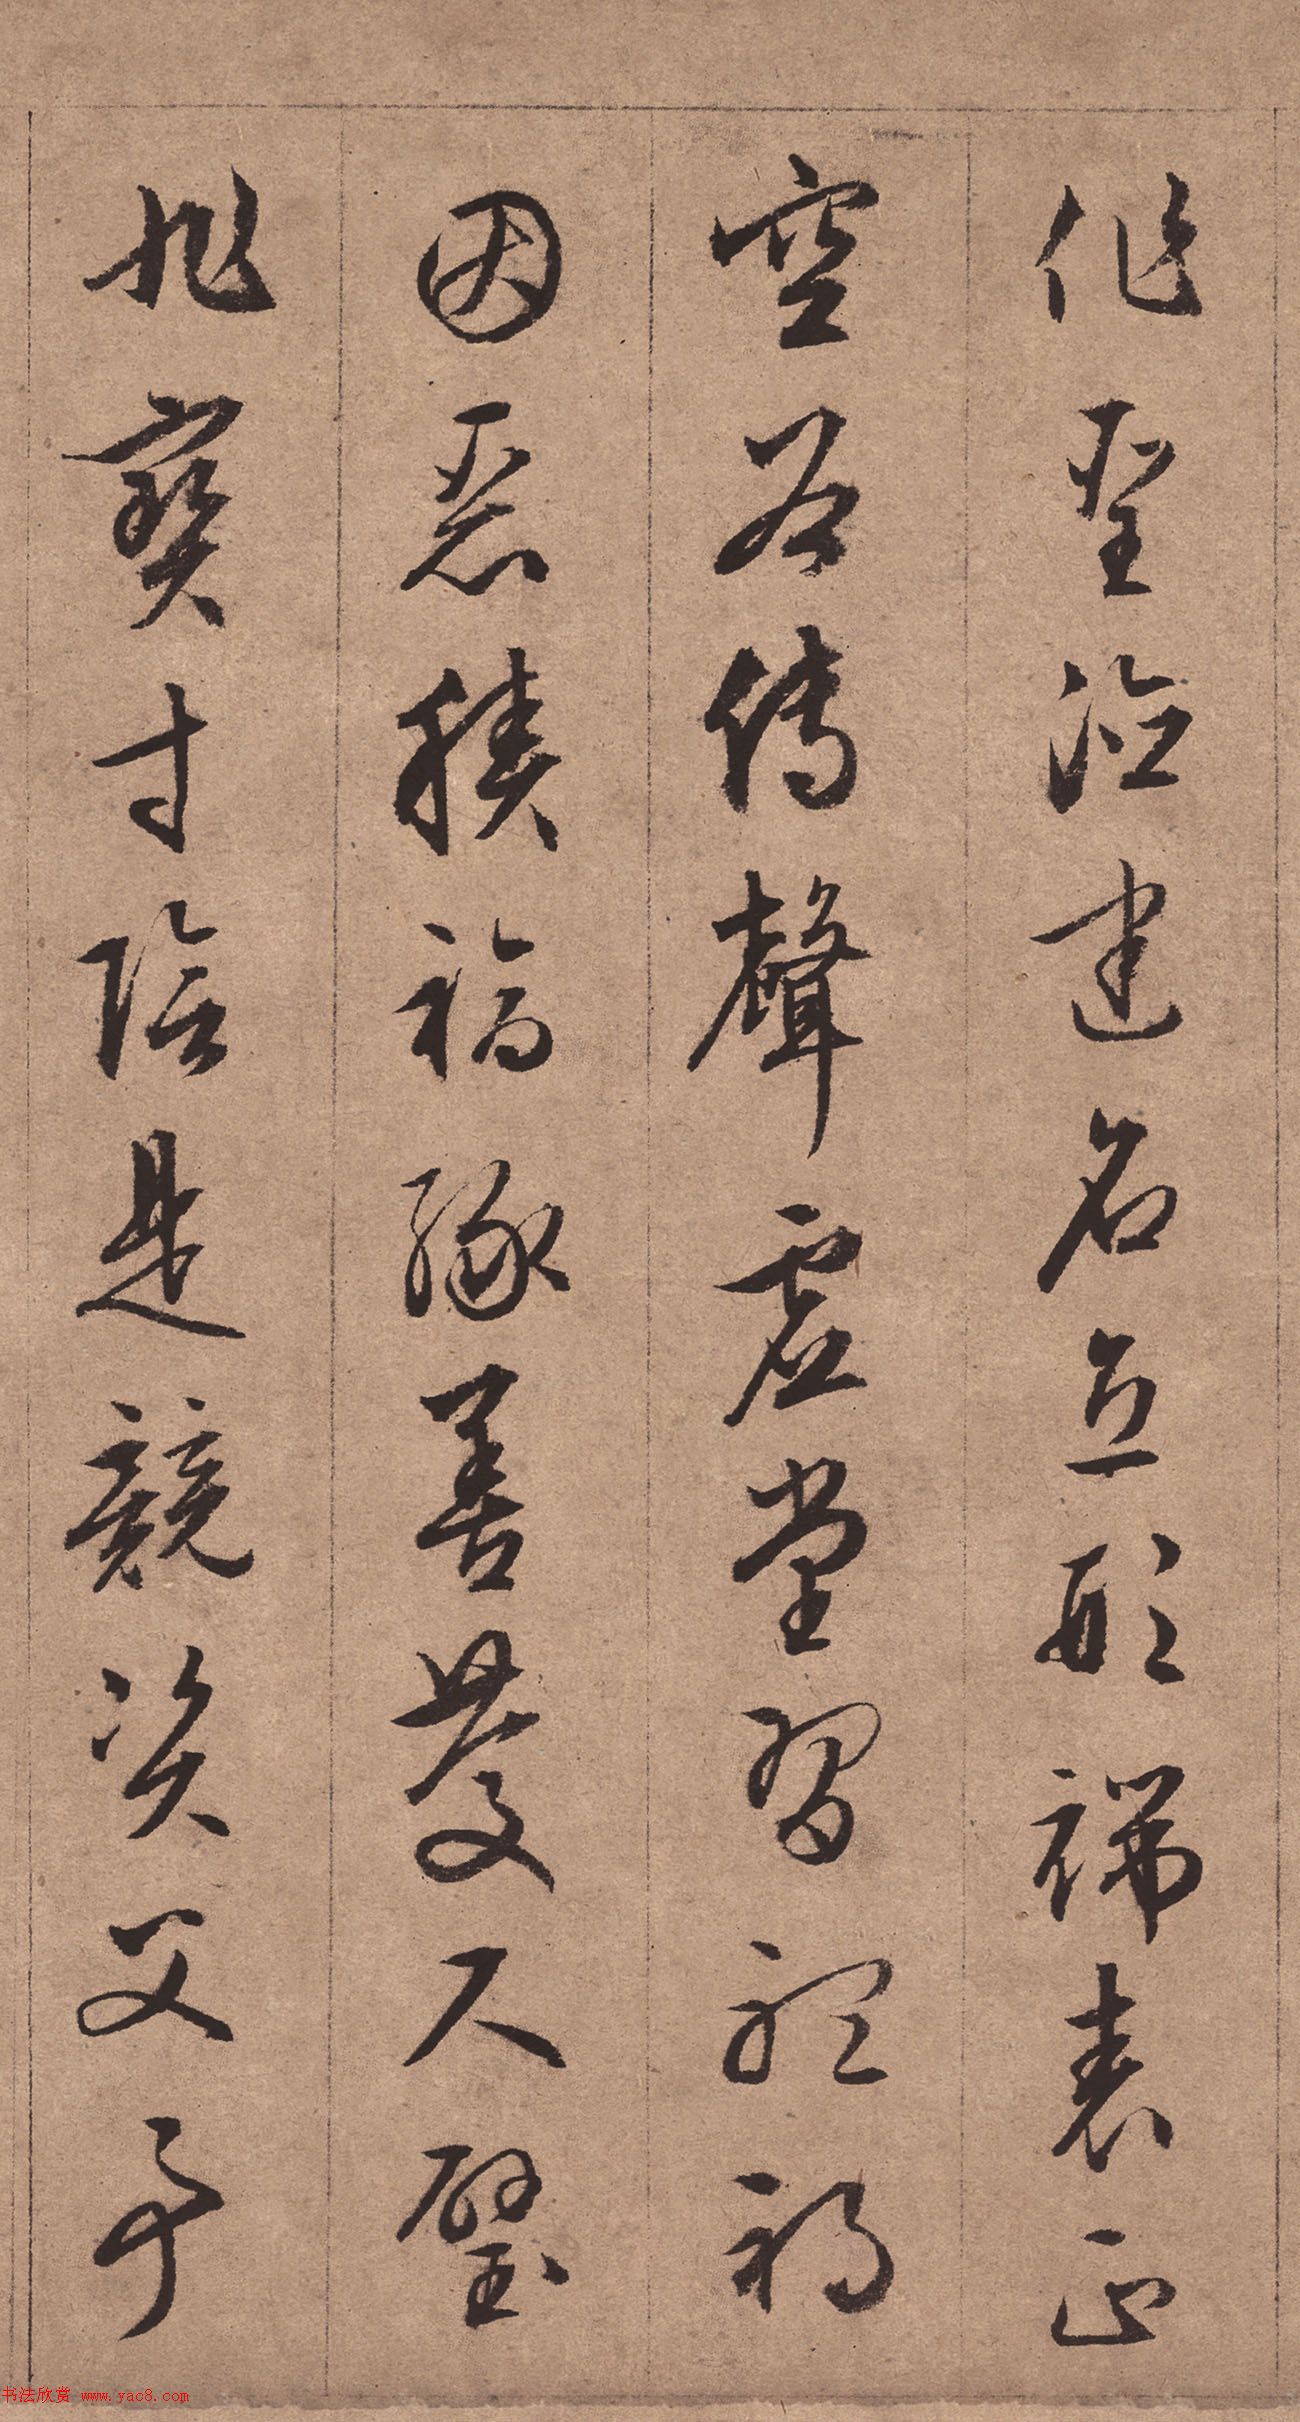 作聖德建名立形端表正
空谷傳聲虛堂習聽禍
因惡積福緣善慶尺璧
非寶寸陰是競資父事
书法欣赏 www.yac8.com